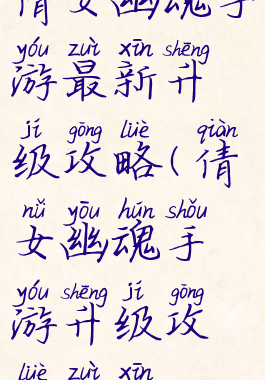 倩女幽魂手
yóu zuì xīn shēng
游最新升
jí gōng lüè qiàn
级攻略(倩
nǚ yōu hún shǒu
女幽魂手
yóu shēng jí gōng
游升级攻
lüè zuì xīn